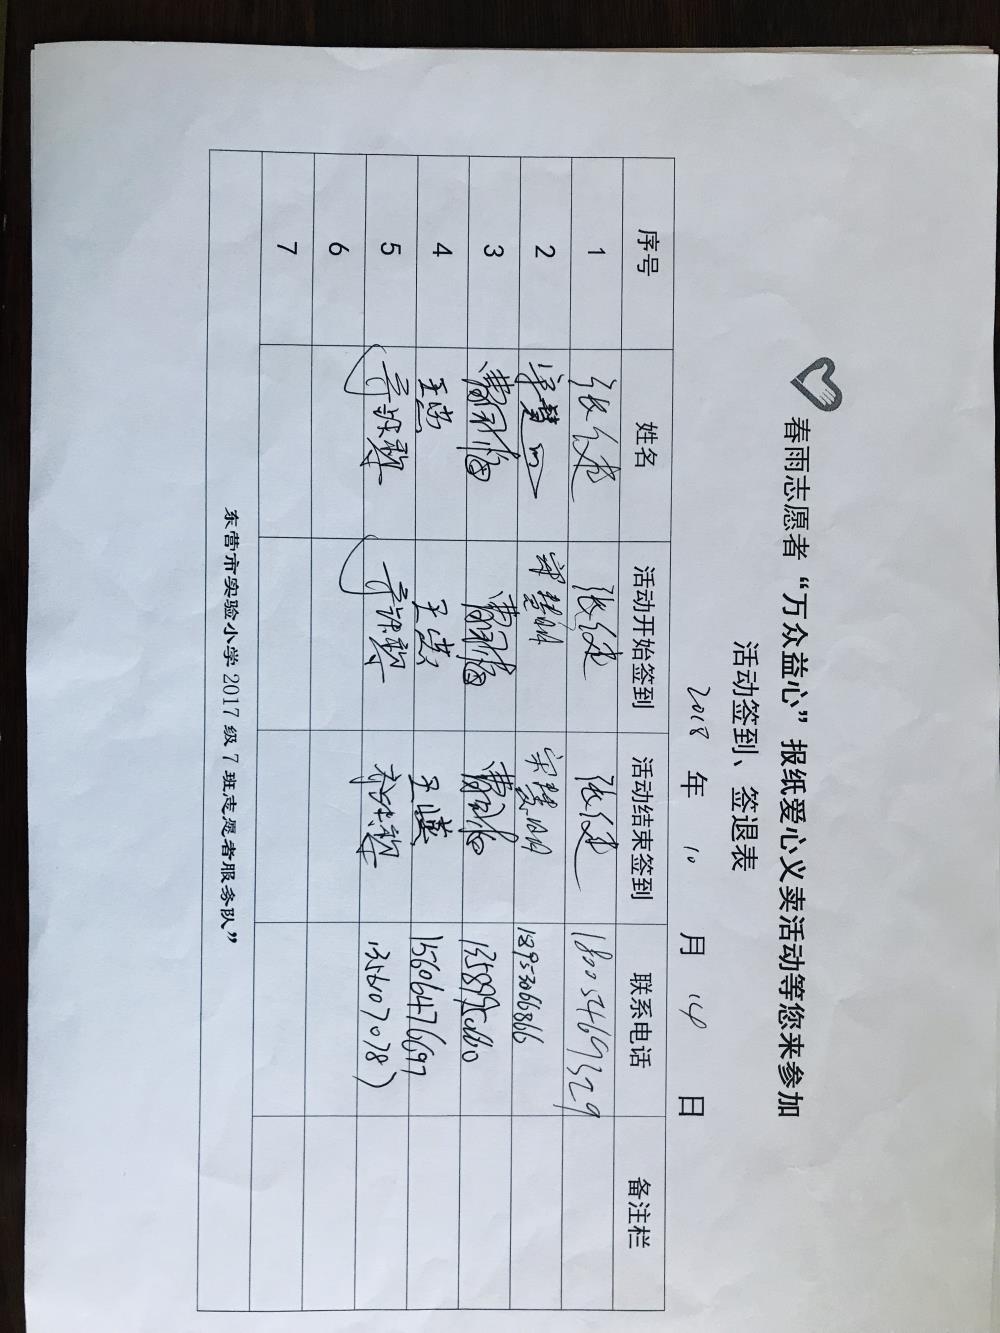 春雨志愿者“万众益心”报纸爱心义卖活动等您来参加
活动签到、签退表
2018 年 10 月 14 日
序号 姓名 活动开始签到 活动结束签到 联系电话 备注栏
1 张健 张健 张健 18005469329
2 宋慧明 宋慧明 宋慧明 18953066866
3
4 王 王 王 15606476697
5 13561070781
6
7
东营市实验小学 2017 级 7 班志愿者服务队”